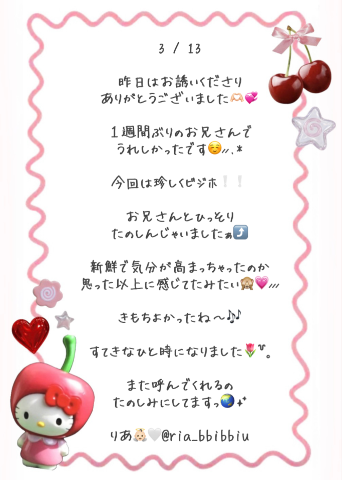 3 / 13
昨日はお誘いくださり
ありがとうございました🫶🏻💞
1週間ぶりのお兄さんで
うれしかったです☺️〃.*
今回は珍しくビジホ❕❕
お兄さんとひっそり
たのしんじゃいましたぁ⤴️
新鮮で気分が高まっちゃったのか
思った以上に感じてたみたい🙈💗〃
きもちよかったね〜🎶
すてきなひと時になりました🌷꙳。
また呼んでくれるの
たのしみにしてますっ🌏✨
りあ👸🏼🤍@ria_bbibbiu